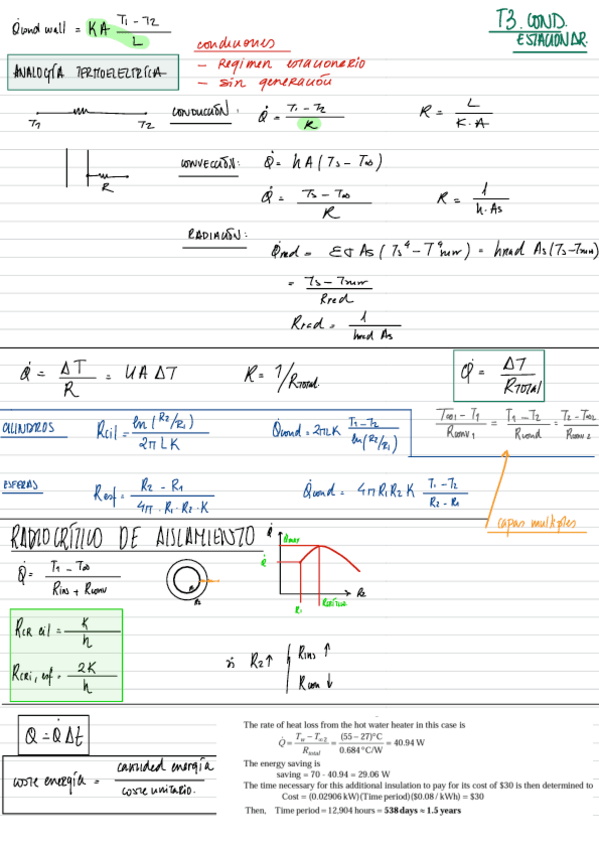 T3. COND.
ESTACIONAR.
Q̇cond wall = KA (T1 - T2) / L
condiciones
- Regimen estacionario
- sin generación
ANALOGÍA TERMOELÉCTRICA
T1 T2 CONDUCCIÓN: Q̇ = (T1 - T2) / R R = L / (K·A)
R CONVECCIÓN: Q̇ = hA (Ts - T∞)
Q̇ = (Ts - T∞) / R R = 1 / (h·As)
RADIACIÓN: Q̇rad = εσ As (Ts⁴ - T⁴surr) = hrad As (Ts - Tsurr)
= (Ts - Tsurr) / Rrad
Rrad = 1 / (hrad As)
Q̇ = ΔT / R = UA ΔT R = 1/RTOTAL Q̇ = ΔT / RTOTAL
CILINDROS Rcil = ln(R2/R1) / (2πLK) Q̇cond = 2πLK (T1 - T2) / ln(R2/R1)
(T∞1 - T1) / Rconv1 = (T1 - T2) / Rcond = (T2 - T∞2) / Rconv2
ESFERAS Resf = (R2 - R1) / (4π·R1·R2·K) Q̇cond = 4πR1R2K (T1 - T2) / (R2 - R1)
capas multiples
RADIO CRÍTICO DE AISLAMIENTO
Q̇ = (T1 - T∞) / (Rins + Rconv)
Q̇ Q̇max Q̇ R1 Rcrítico R2
RCR cil = K / h
RCRi, esf = 2K / h
si R2↑ Rins ↑
Rcon ↓
Q = Q̇ Δt
coste energía = cantidad energía / coste unitario.
The rate of heat loss from the hot water heater in this case is
Q̇ = (Tw − T∞2) / Rtotal = (55 − 27)°C / 0.684 °C/W = 40.94 W
The energy saving is
saving = 70 - 40.94 = 29.06 W
The time necessary for this additional insulation to pay for its cost of $30 is then determined to
Cost = (0.02906 kW)(Time period)($0.08 / kWh) = $30
Then, Time period = 12,904 hours = 538 days ≈ 1.5 years